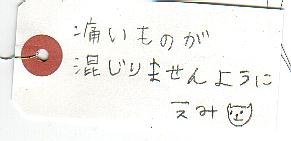 痛いものが
混じりませんように
えみ